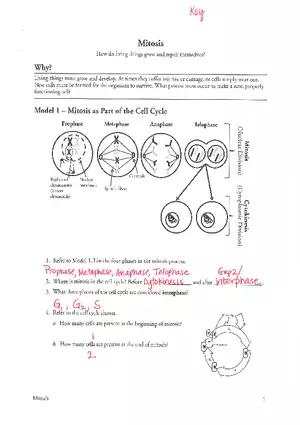 Key
Mitosis
How do living things grow and repair themselves?
Why?
Living things must grow and develop. At times they suffer injuries or damage, or cells simply wear out.
New cells must be formed for the organism to survive. What process must occur to make a new, properly
functioning cell?
Model 1 – Mitosis as Part of the Cell Cycle
Prophase Metaphase Anaphase Telophase
Mitosis
(Nuclear Division)
Cytokinesis
(Cytoplasmic Division)
1. Refer to Model 1. List the four phases in the mitosis process.
Prophase, Metaphase, Anaphase, Telophase
Gap2/
2. Where is mitosis in the cell cycle? Before cytokinesis and after interphase
3. What three phases of the cell cycle are considered interphase?
G1, G2, S
4. Refer to the cell cycle shown.
a. How many cells are present at the beginning of mitosis?
1
b. How many cells are present at the end of mitosis?
2
Mitosis 1